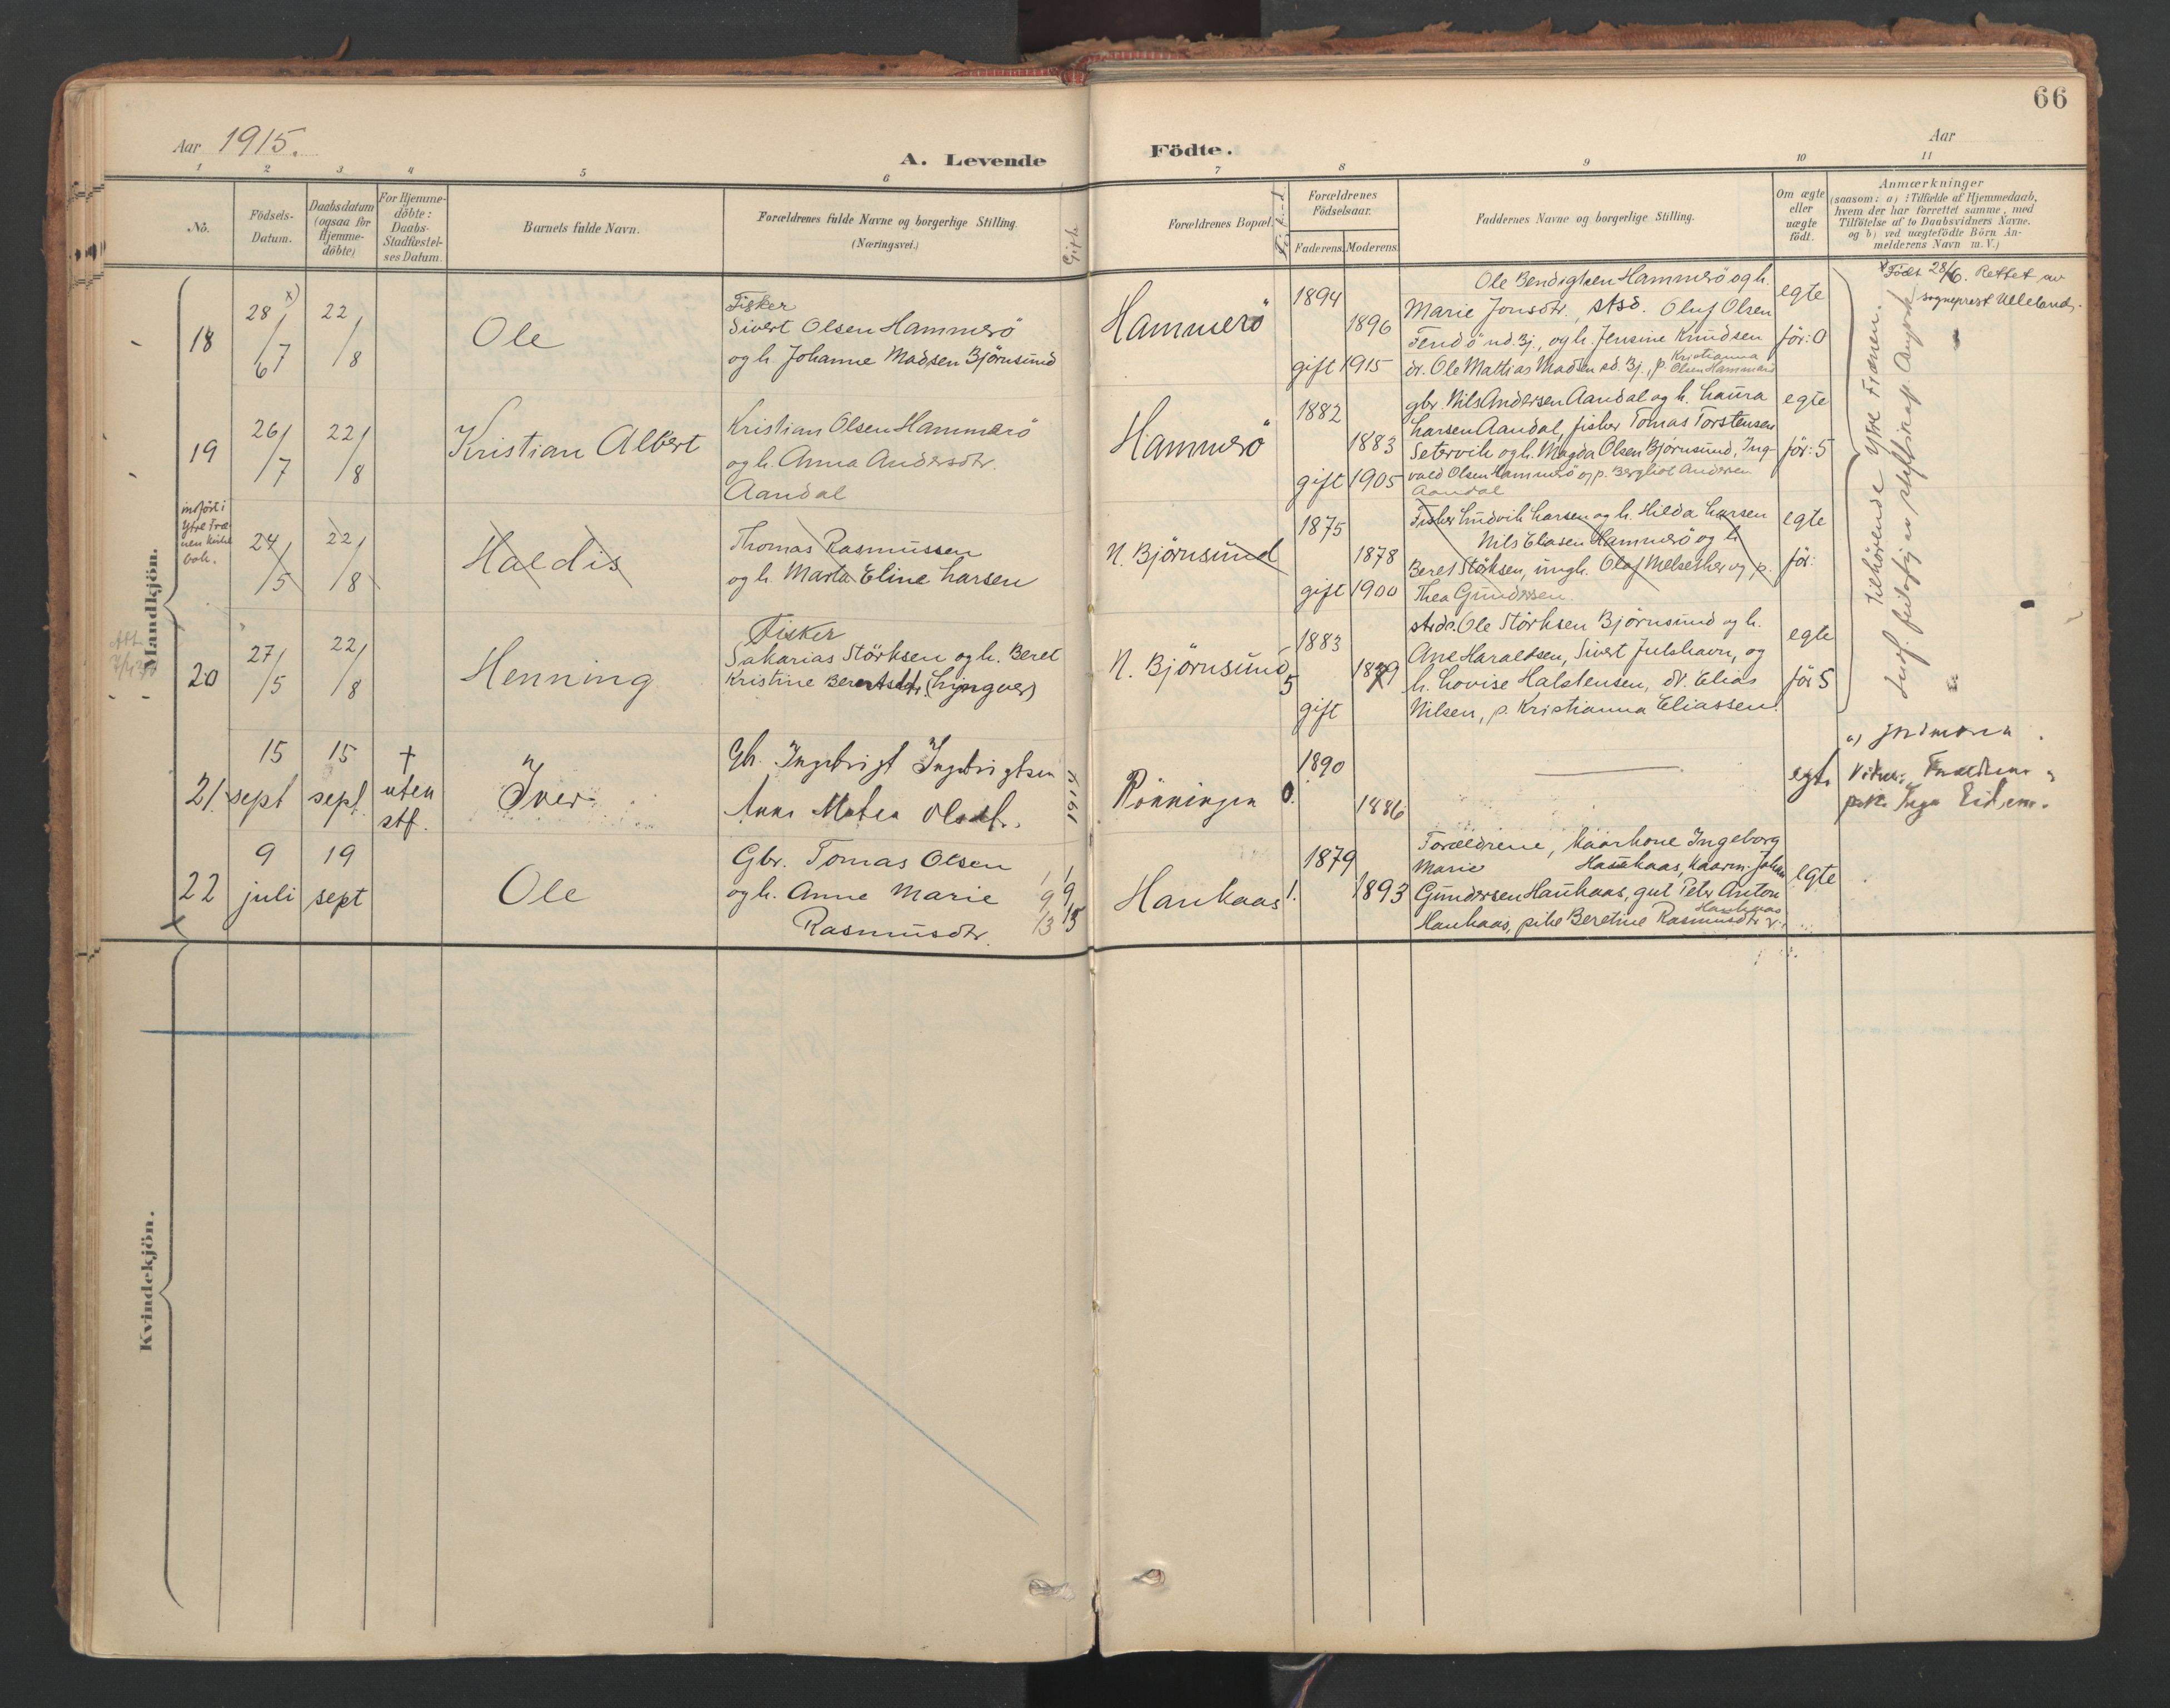 66
Aar 1915.
A. Levende Födte.
Aar
1 2 3 4 5 6 7 8 9 10 11
No.
Födsels-Datum.
Daabsdatum (ogsaa for Hjemme-döbte)
For Hjemme-döbte: Daabs-Stadfæstel-ses Datum.
Barnets fulde Navn.
Forældrenes fulde Navne og borgerlige Stilling
(Næringsvei.)
Gift
Forældrenes Bopæl.
Forældrenes Födselsaar.
Faderens. Moderens.
Faddernes Navne og borgerlige Stilling.
Om ægte eller uægte födt.
Anmærkninger
(saasom: a) i Tilfælde af Hjemmedaab,
hvem der har forrettet samme, med
Tilföielse af to Daabsvidners Navne.
og b) ved uægtefödte Börn An-
melderens Navn m. V.)
Mandkjön.
18
28/7 x)
6
22/8
Ole
Fisker
Sivert Olsen Hammerö
og h. Johanne Madsen Björnsund
Hammerö
1894
1896
gift 1915
Ole Bendigtsen Hammerö og h.
Marie Jonsdtr., stsd. Oluf Olsen
Fendö nd. Bj., og h. Jensine Knudsen
dr. Ole Mathias Madsen sd. Bj., p. Kristianna
Olsen Hammerö
egte
för: 0
x Födt 28/6. Rettet av
sogneprest Ulleland.
19
26/7
22/8
Kristian Albert
Kristian Olsen Hammerö
og h. Anna Andersdtr.
Aandal
Hammerö
1882
1883
gift 1905
gbr. Nils Andersen Aandal og h. Laura
Larsen Aandal, fisker Tomas Torstensen
Setervik og h. Magda Olsen Björnsund, Ing-
vald Olsen Hammerö og p. Bergliot Andersen
Aandal
egte
för: 5
indfört i
Ytre Fræ-
nen kirke
bok.
24/5
22/8
Haldis
Thomas Rasmussen
og h. Marta Eline Larsen
N. Björnsund
1875
1878
gift 1900
Fisker Ludvik Larsen og h. Hilda Larsen
Nils Elasen Hammerö og h.
Beret Störksen, ungk. Olaf Melsether og p.
Thea Gundersen.
egte
för:
Tilhörende Ytre Frænen.
20
27/5
22/8
Henning
Fisker
Sakarias Störksen og h. Beret
Kristine Berentsdtr. (Lyngver)
N. Björnsund
5
1883
1879
gift
stsds. Ole Störksen Björnsund og h.
Ane Haraldsen, Sivert Julshavn, og
h. Lovise Halstensen, dr. Elias
Nilsen, p. Kristianna Eliassen.
egte
för 5
21.
15 sept
15 sept.
+
uten
stf.
Iver
Gb. Ingebrigt Ingebrigtsen
Anne Matea Olsdt.
1914
Rönningen
0.
1890
1886
egte
a) jordmoren.
Vidner: Forældrene
pike Inga Eidem.
22
9 juli
19 sept
Ole
Gbr. Tomas Olsen
og h. Anne Marie
Rasmusdtr.
Haukaas
1.
1879
1893
Forældrene, kaarkone Ingeborg
Marie Haukaas, kaarm. Johan
Gundersen Haukaas, gut Peter Anton
Haukaas, pike Beretine Rasmusdtr
Haukaas
egte
Kvindekjön.